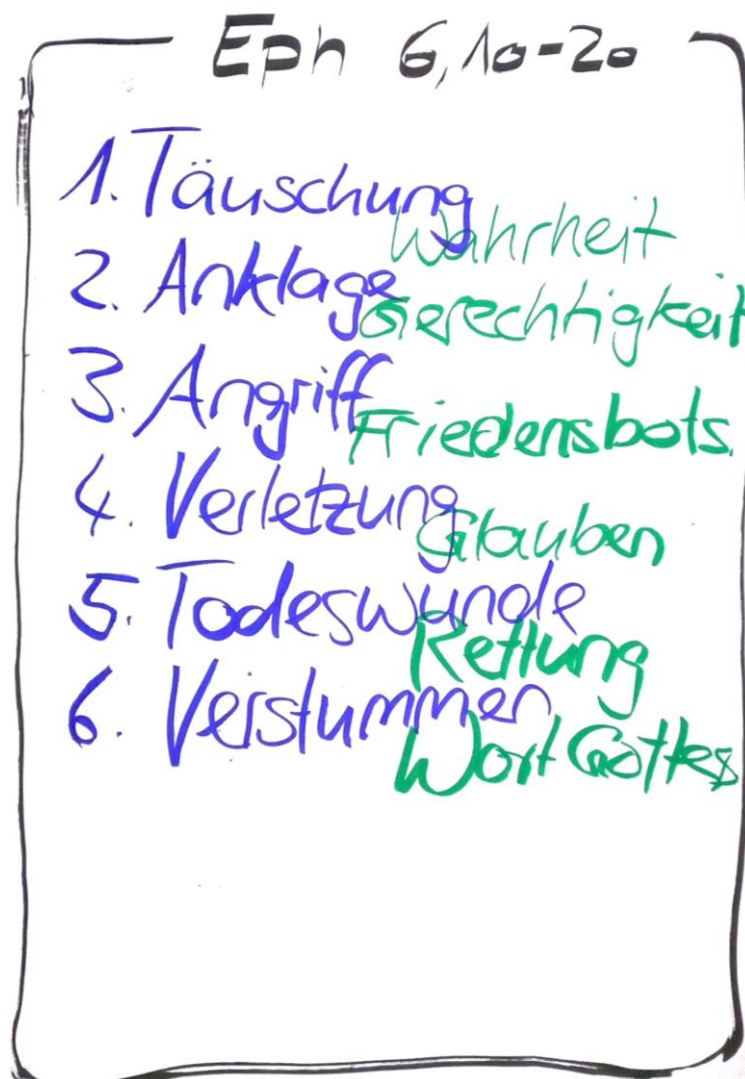 Eph 6,10-20
1. Täuschung
Wahrheit
2. Anklage
Gerechtigkeit
3. Angriff
Friedensbots.
4. Verletzung
Glauben
5. Todeswunde
Rettung
6. Verstummen
Wort Gottes